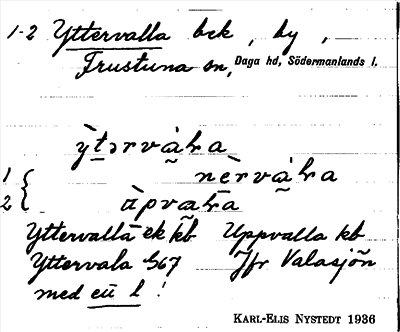 1-2 Yttervalla bck, by,
Frustuna sn, Daga hd, Södermanlands l.
ỳtərvàɫɾa
1 nèrvàɫɾa
2 àpvaɫɾa
Yttervalla ek kb Uppvalla kb
Yttervala 567 Jfr Valasjön
med ett l !
KARL-ELIS NYSTEDT 1936